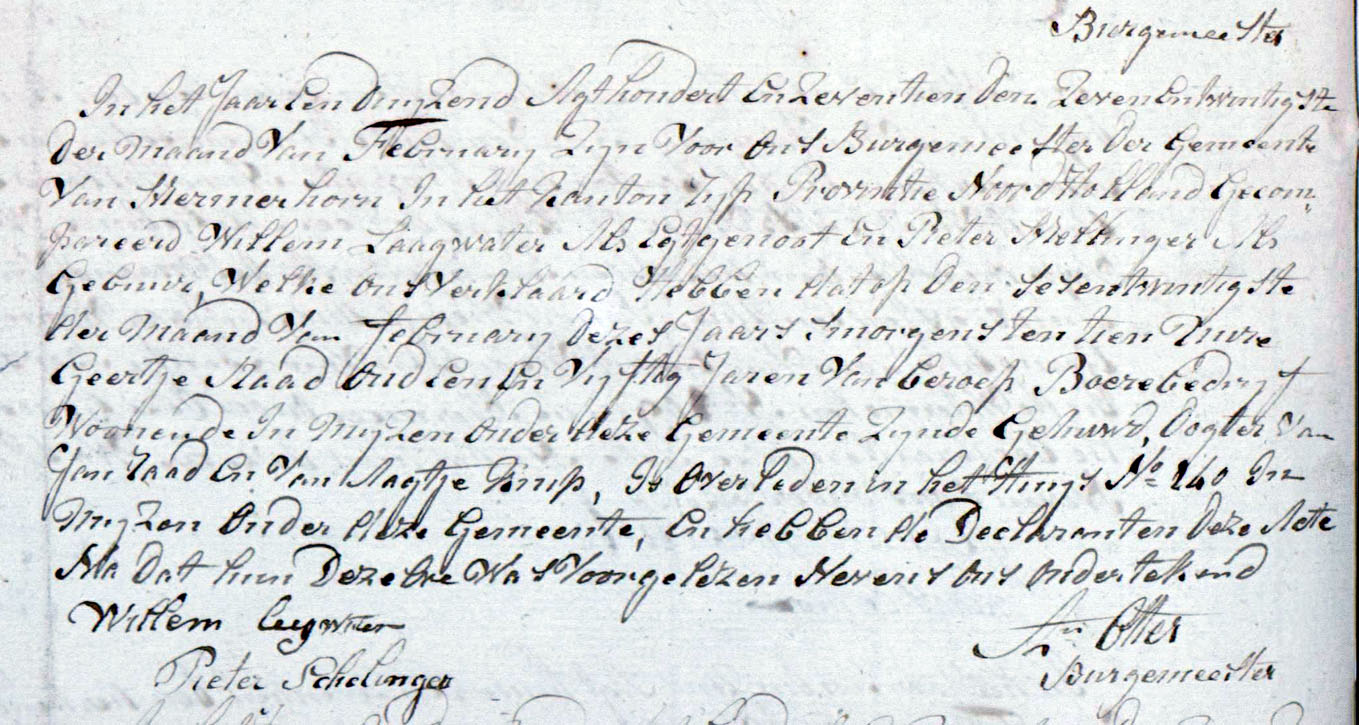 Burgemeester
In het Jaar Een Duyzend Agt hondert En Zeventien den Zeven En twintigste
Der Maand Van February Zyn Voor Ons Burgemeester der Gemeente
Van Hermerhorn In het Kanton Zyp Provintie Noord Holland Gecom„
pareerd Willem Laagwater Als Egtgenoot En Pieter Mellinger Als
Gebuur, Welke Ons Verklaard Hebben dat op Den Sesentwintigste
der Maand Van February Dezes Jaars Smorgens ten tien Uure
Geertje Raad Oud Een En Vyftig Jaren Van beroep Boerebedryf
Woonende In Myzen Onder deze Gemeente Zynde Gehuwd, Dogter Van
Jan Raad En Van Aagtje Kunp, Is Overleden in het Huys No 140 In
Myzen Onder deze Gemeente, En hebben de Declaranten Deze Acte
Na Dat hun Dezelve Was Voorgelezen Nevens Ons Ondertekend
Willem Leegwater
Otter
Pieter Schelinger
Burgemeester